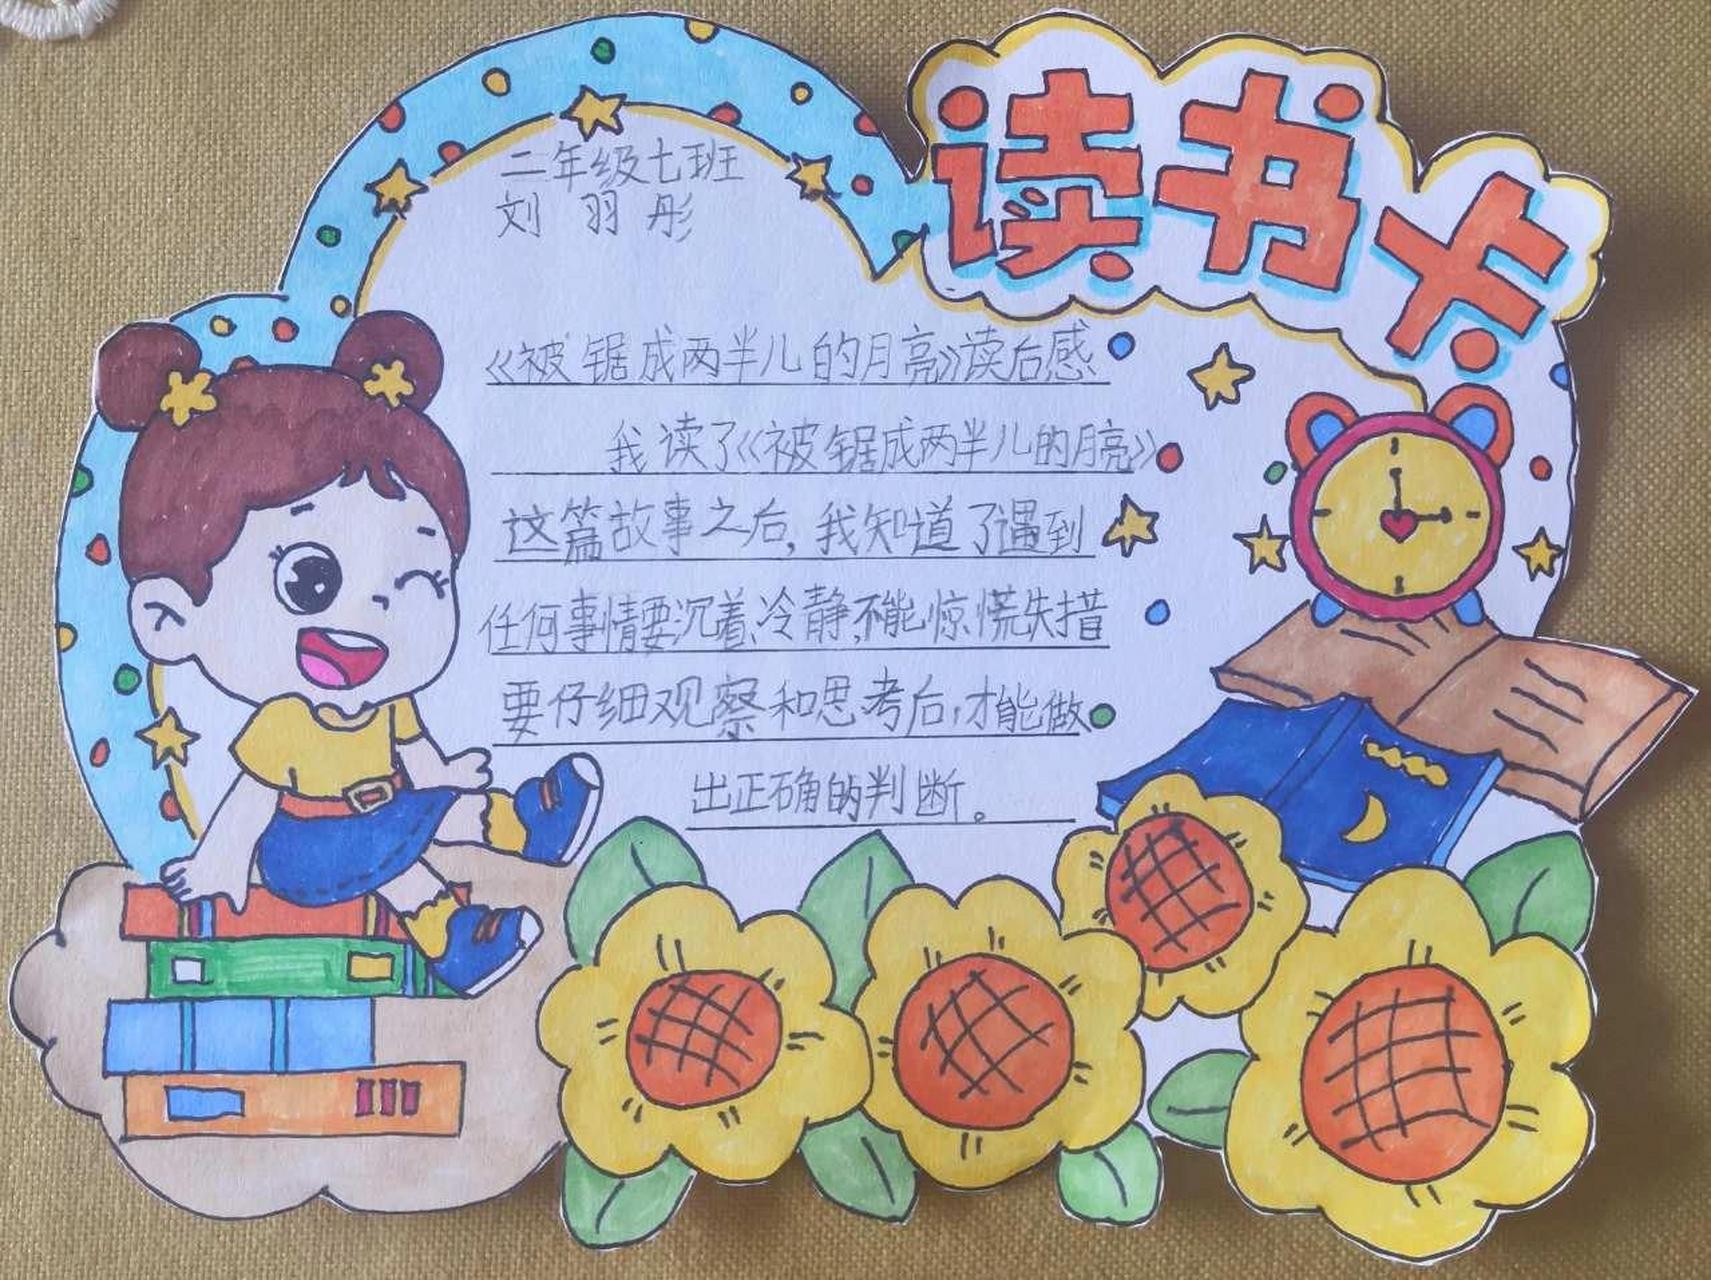 读书卡
二年级七班
刘羽彤
《被锯成两半儿的月亮》读后感
我读了《被锯成两半儿的月亮》
这篇故事之后,我知道了遇到
任何事情要沉着、冷静,不能惊慌失措
要仔细观察和思考后,才能做
出正确的判断。